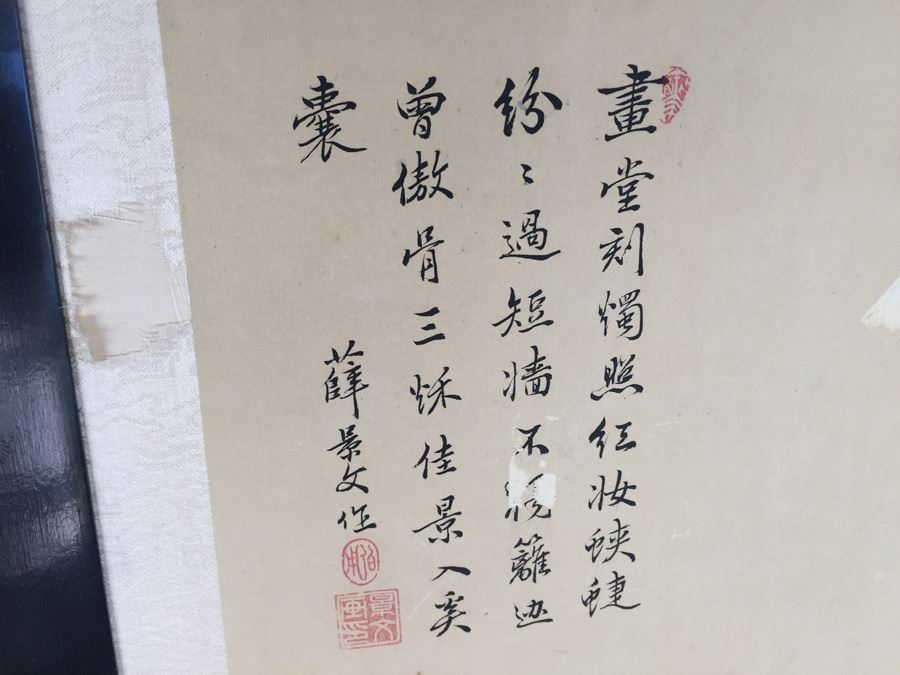 畫堂刻燭照紅妝蛺蜨
紛〻過短牆不籬
曾傲骨三秌佳景入奚
囊
薛景文作